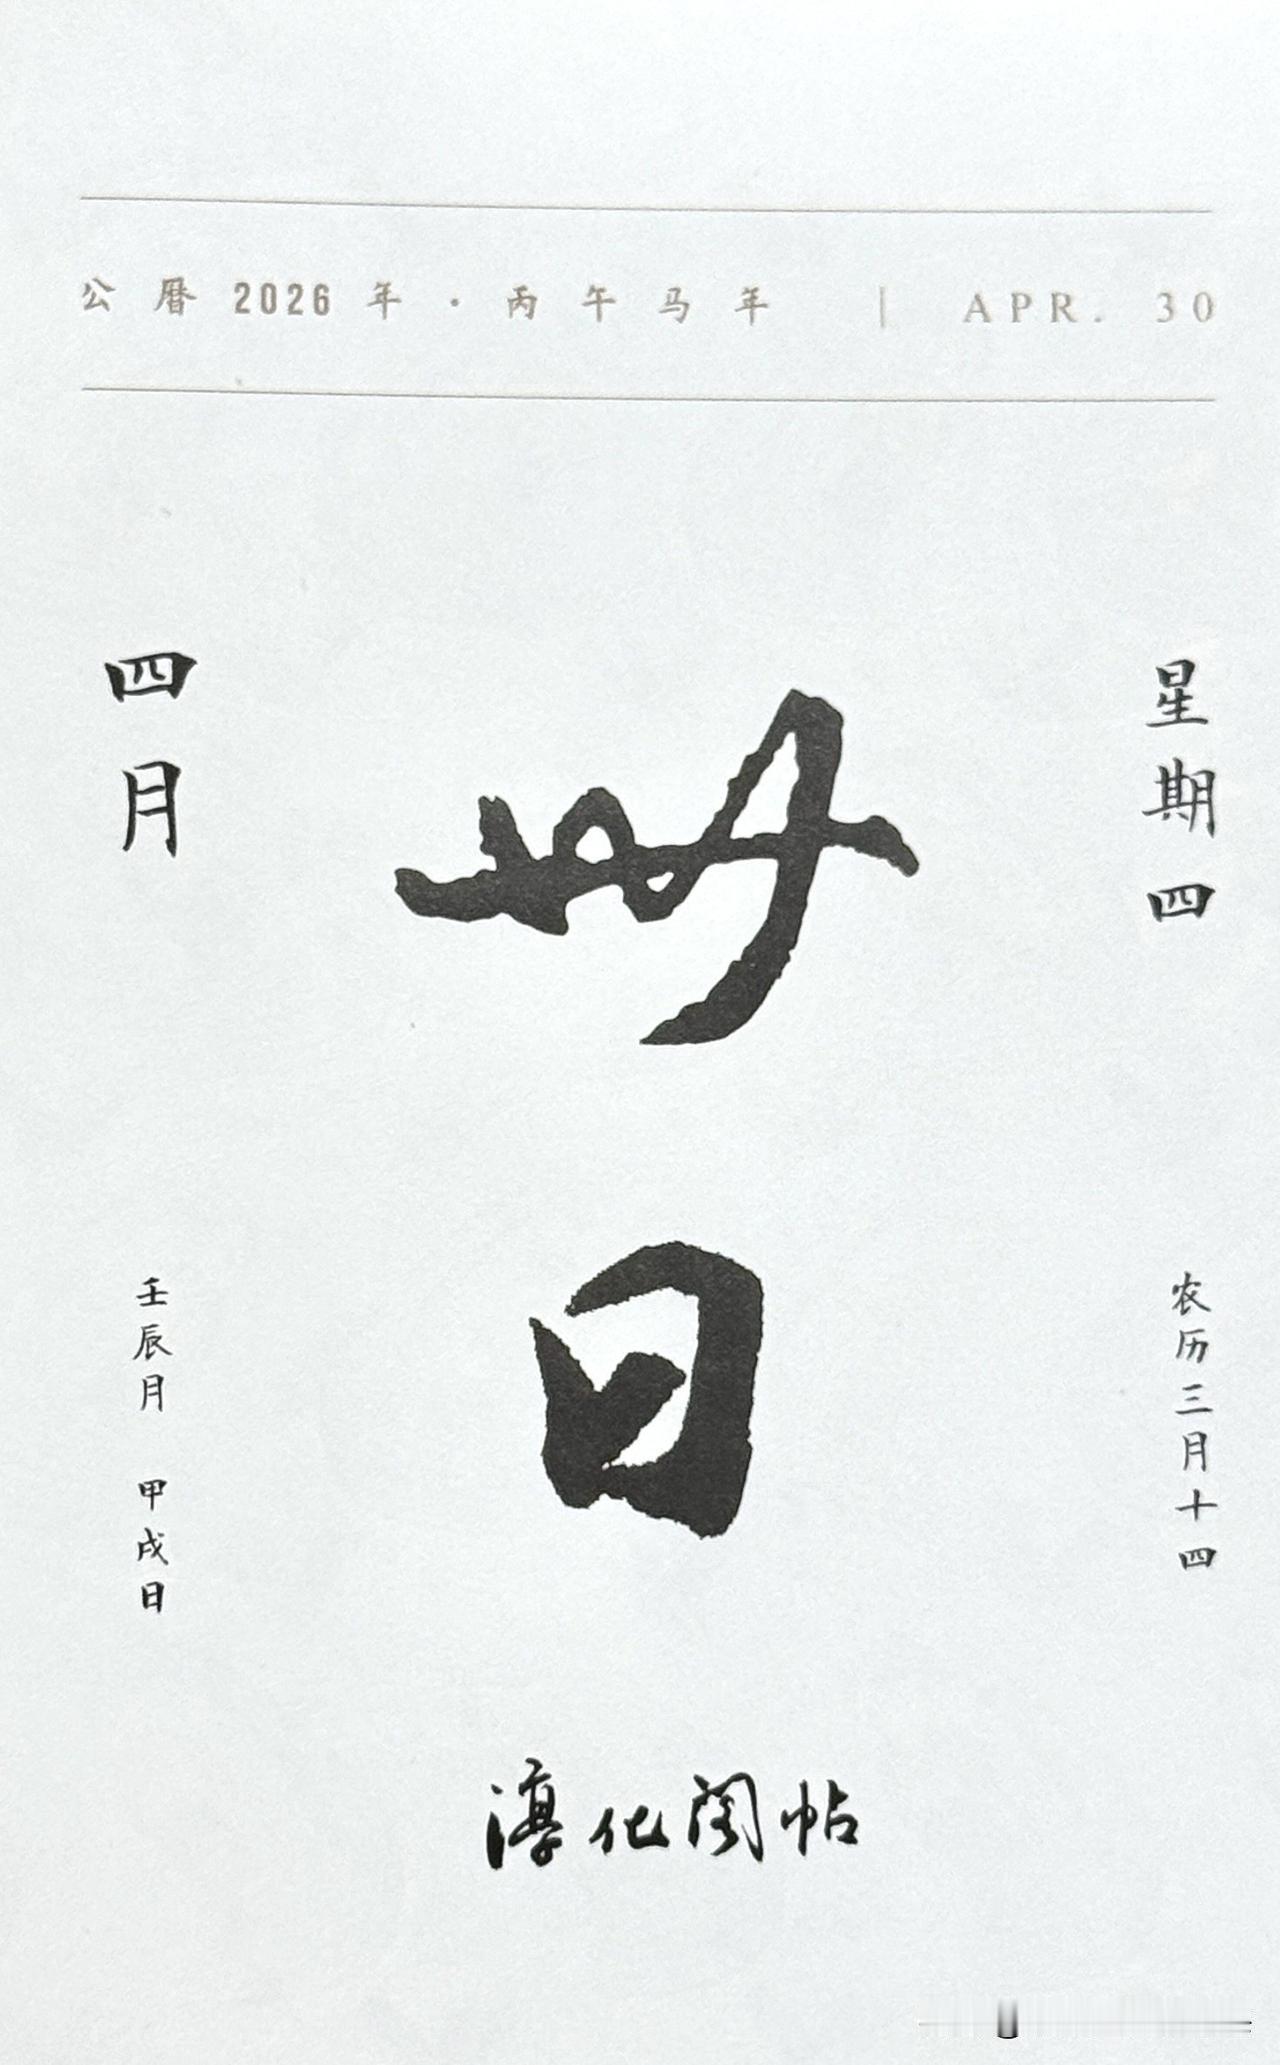 公曆2026年·丙午马年 | APR. 30
四月
卅日
星期四
壬辰月 甲戌日
农历三月十四
淳化阁帖